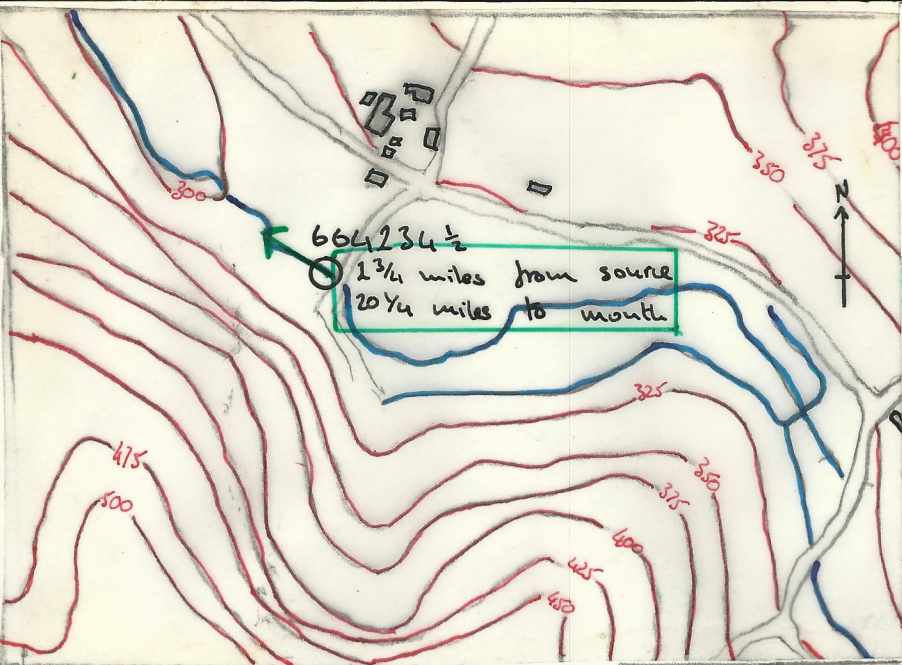 400
375
350
N
300
325
664234½
1¾ miles from source
20¼ miles to mouth
325
475
350
375
500
400
425
450